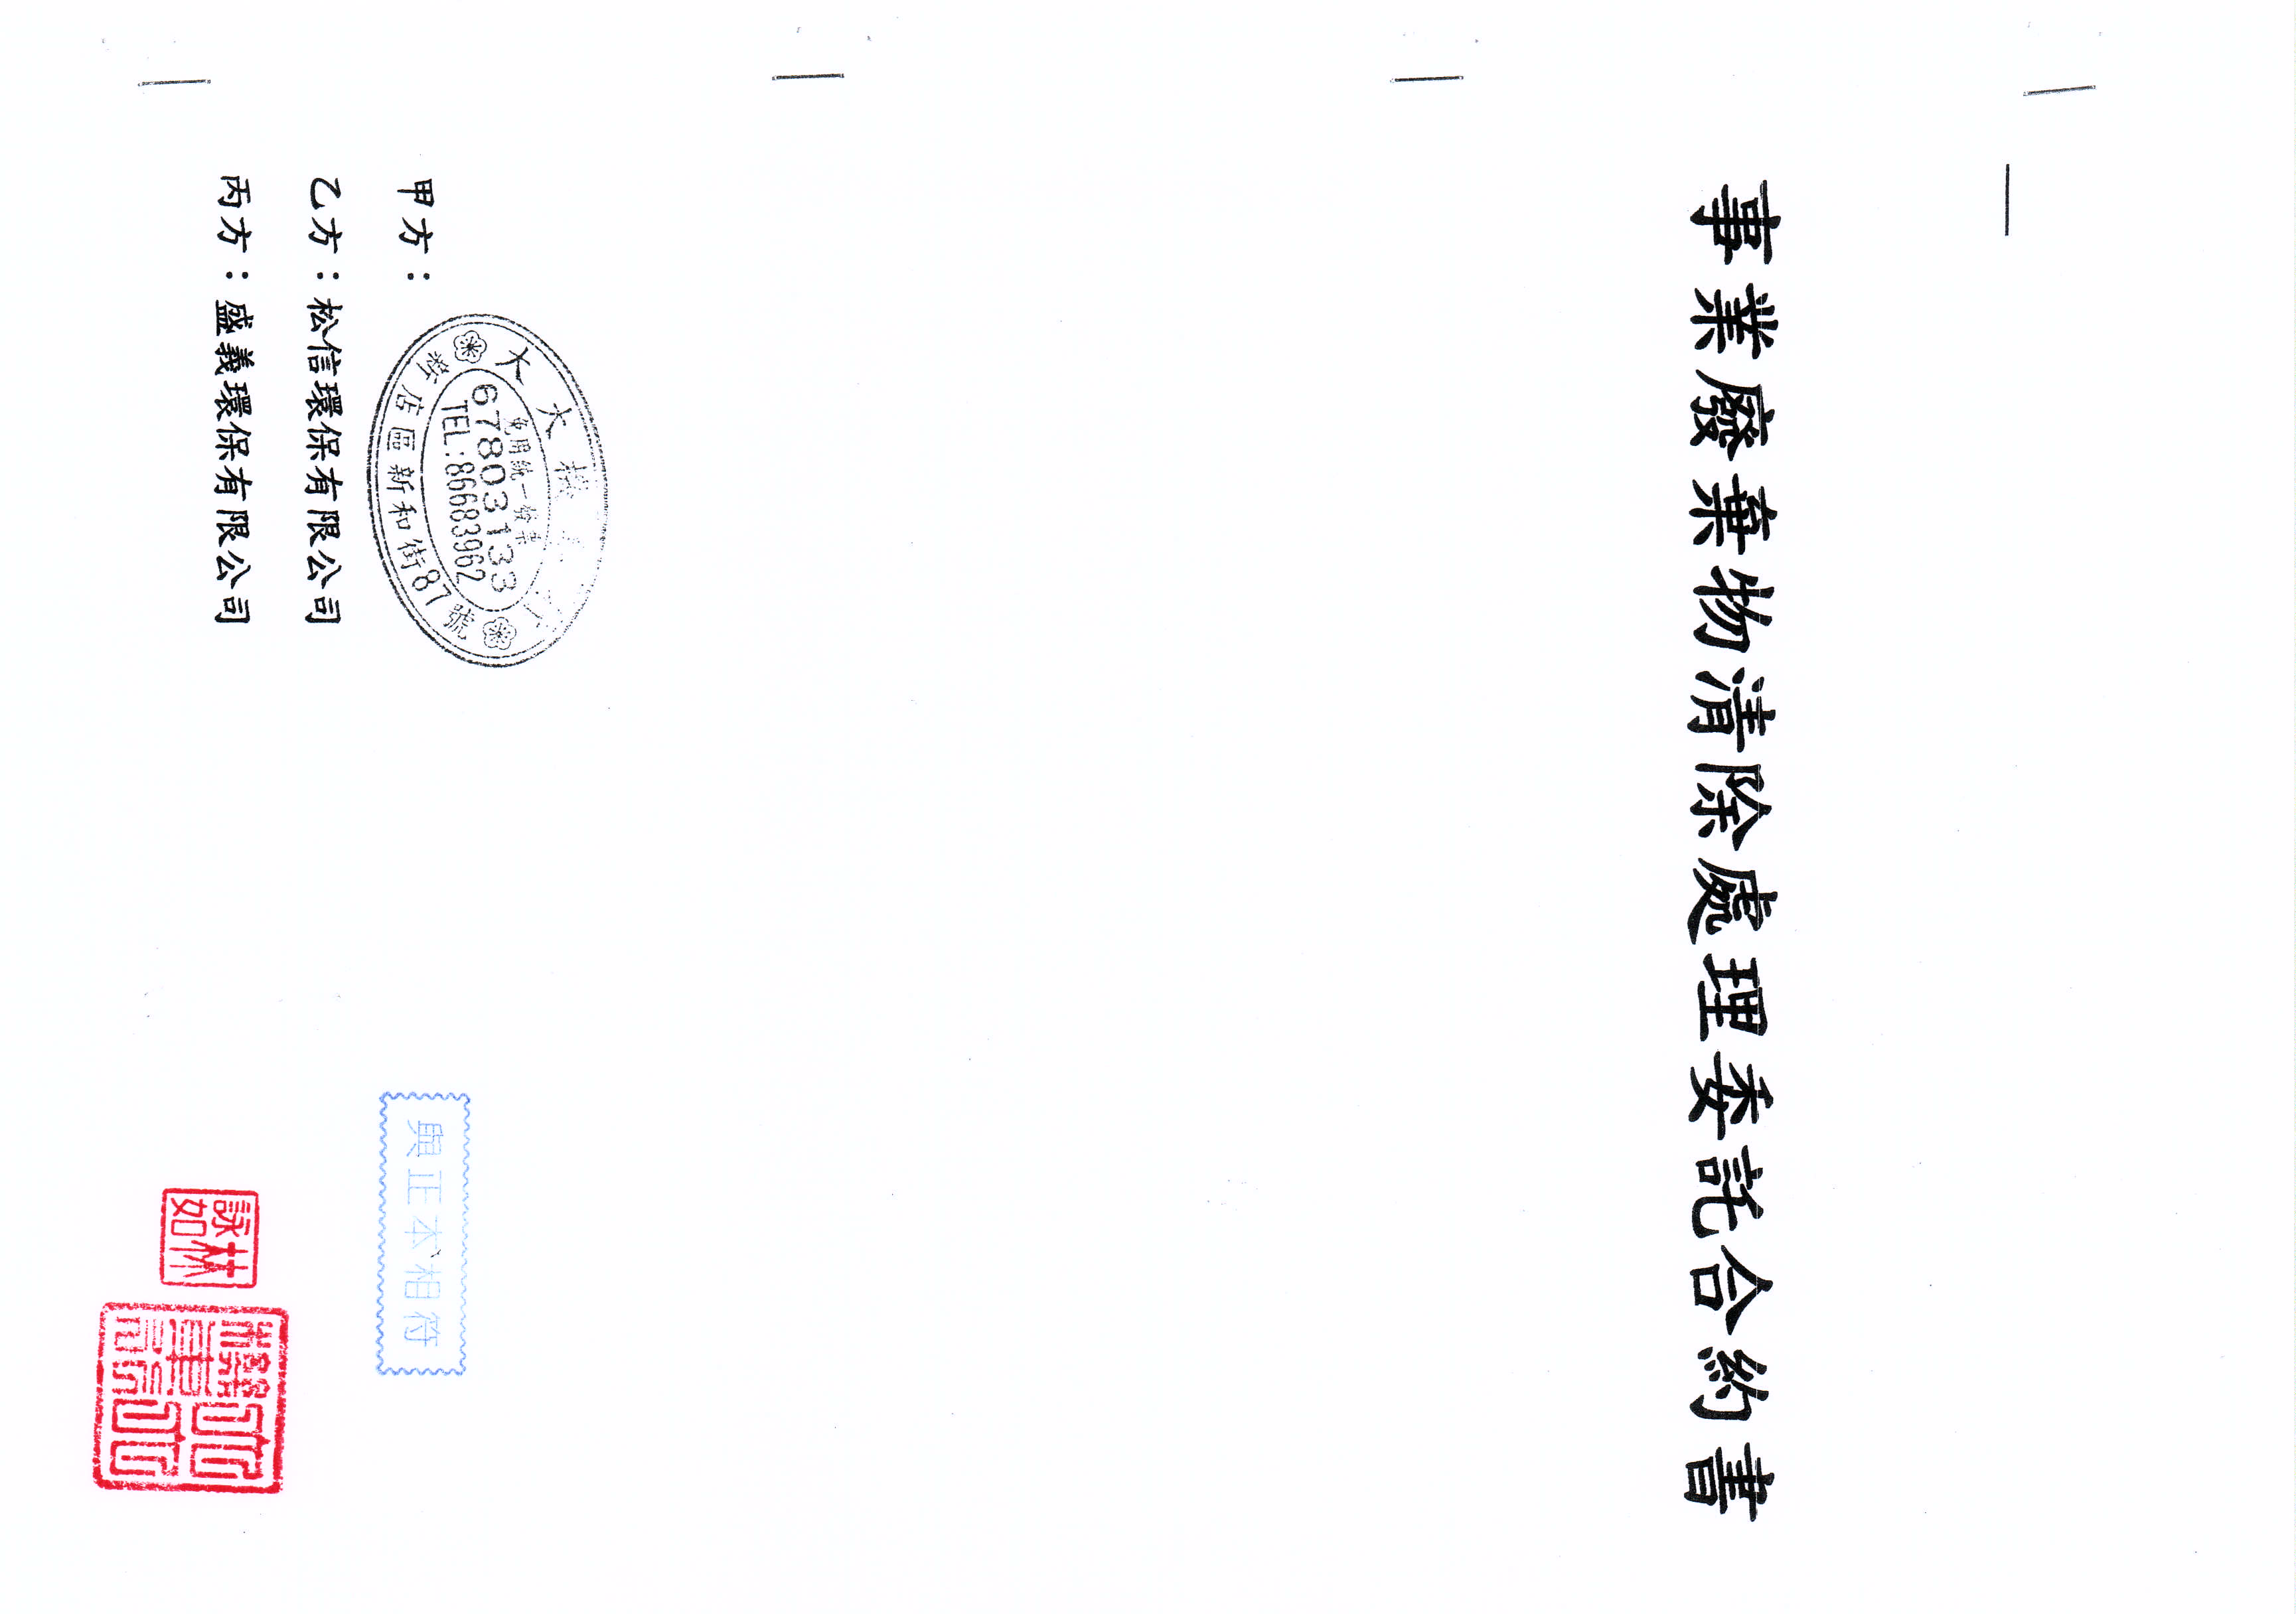 事業廢棄物清除處理委託合約書
甲方：
大大
免用統一發票
67803133
TEL:86683962
新店區新和街87號
乙方：松信環保有限公司
丙方：盛義環保有限公司
與正本相符
林詠如